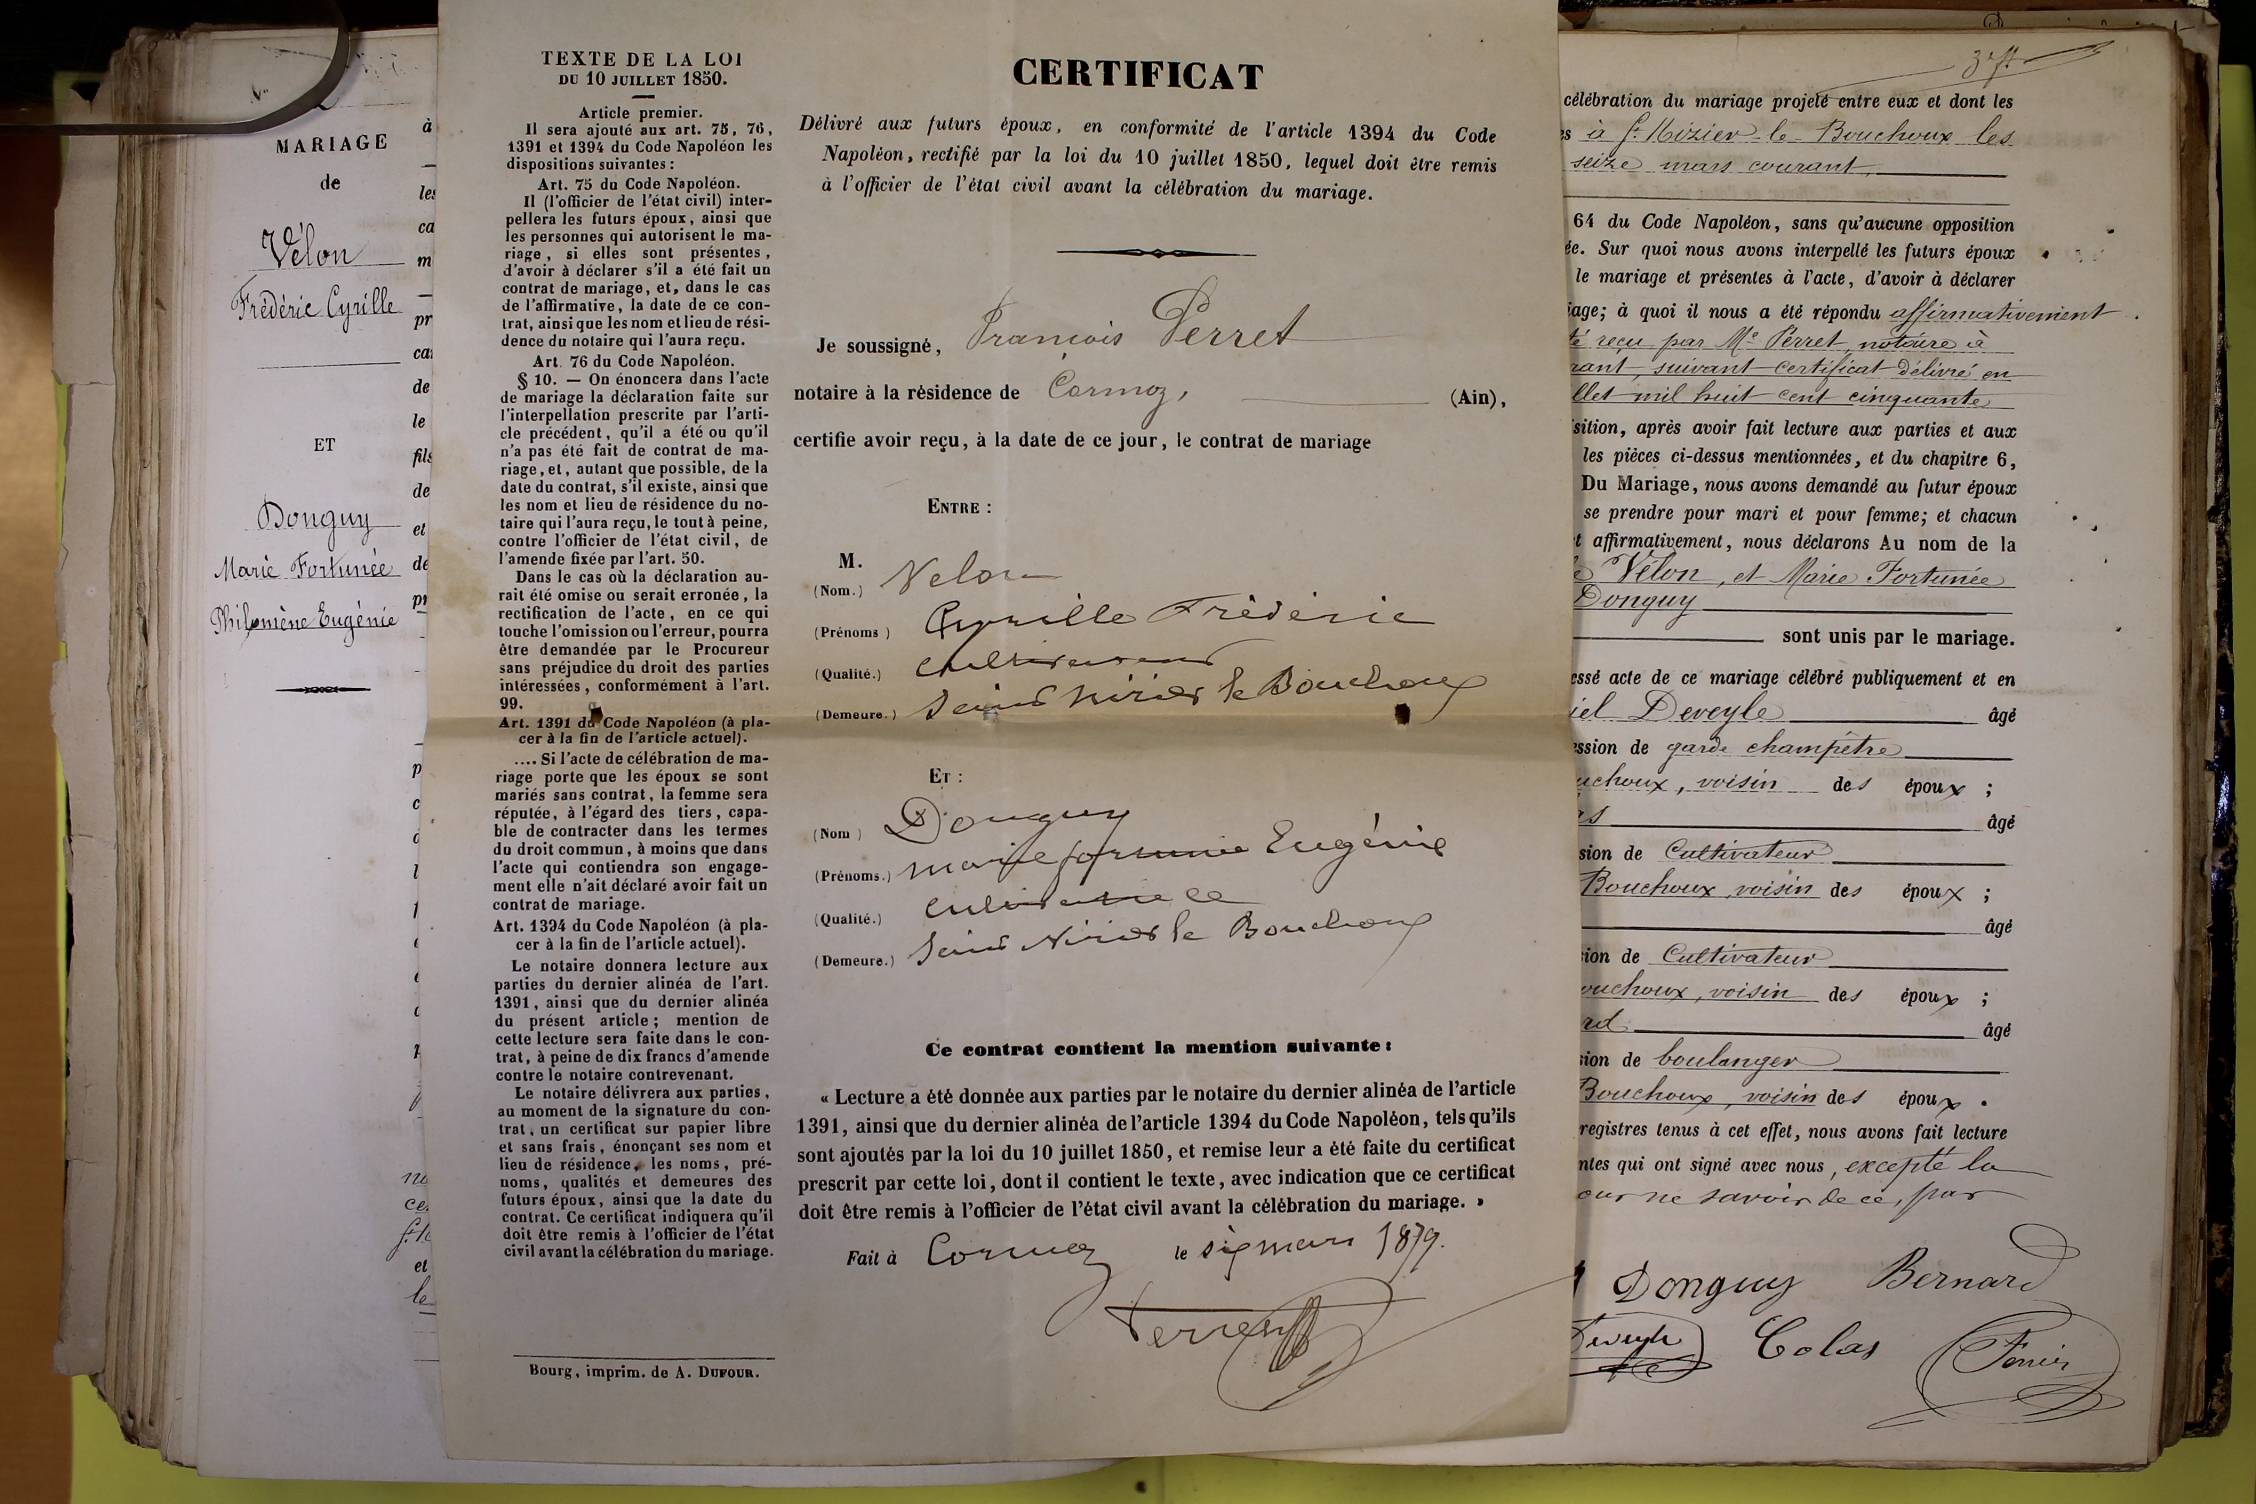 MARIAGE
de
Vélon
Frédéric Cyrille
ET
Donguy
Marie Fortunée
Philomène Eugénie
à
les
ca
m
pr
de
le
fils
de
et
de
pr
et
le
TEXTE DE LA LOI
DU 10 JUILLET 1850.
Article premier.
Il sera ajouté aux art. 75, 76,
1391 et 1394 du Code Napoléon les
dispositions suivantes :
Art. 75 du Code Napoléon.
Il (l'officier de l'état civil) inter-
pellera les futurs époux, ainsi que
les personnes qui autorisent le ma-
riage, si elles sont présentes,
d'avoir à déclarer s'il a été fait un
contrat de mariage, et, dans le cas
de l'affirmative, la date de ce con-
trat, ainsi que les nom et lieu de rési-
dence du notaire qui l'aura reçu.
Art. 76 du Code Napoléon.
§ 10. — On énoncera dans l'acte
de mariage la déclaration faite sur
l'interpellation prescrite par l'arti-
cle précédent, qu'il a été ou qu'il
n'a pas été fait de contrat de ma-
riage, et, autant que possible, de la
date du contrat, s'il existe, ainsi que
les nom et lieu de résidence du no-
taire qui l'aura reçu, le tout à peine,
contre l'officier de l'état civil, de
l'amende fixée par l'art. 50.
Dans le cas où la déclaration au-
rait été omise ou serait erronée, la
rectification de l'acte, en ce qui
touche l'omission ou l'erreur, pourra
être demandée par le Procureur
sans préjudice du droit des parties
intéressées, conformément à l'art.
99.
Art. 1391 du Code Napoléon (à pla-
cer à la fin de l'article actuel).
.... Si l'acte de célébration de ma-
riage porte que les époux se sont
mariés sans contrat, la femme sera
réputée, à l'égard des tiers, capa-
ble de contracter dans les termes
du droit commun, à moins que dans
l'acte qui contiendra son engage-
ment elle n'ait déclaré avoir fait un
contrat de mariage.
Art. 1394 du Code Napoléon (à pla-
cer à la fin de l'article actuel).
Le notaire donnera lecture aux
parties du dernier alinéa de l'art.
1391, ainsi que du dernier alinéa
du présent article ; mention de
cette lecture sera faite dans le con-
trat, à peine de dix francs d'amende
contre le notaire contrevenant.
Le notaire délivrera aux parties,
au moment de la signature du con-
trat, un certificat sur papier libre
et sans frais, énonçant ses nom et
lieu de résidence, les noms, pré-
noms, qualités et demeures des
futurs époux, ainsi que la date du
contrat. Ce certificat indiquera qu'il
doit être remis à l'officier de l'état
civil avant la célébration du mariage.
Bourg, imprim. de A. DUFOUR.
CERTIFICAT
Délivré aux futurs époux, en conformité de l'article 1394 du Code
Napoléon, rectifié par la loi du 10 juillet 1850, lequel doit être remis
à l'officier de l'état civil avant la célébration du mariage.
Je soussigné, François Perret
notaire à la résidence de Cormoz, (Ain),
certifie avoir reçu, à la date de ce jour, le contrat de mariage
ENTRE :
M.
(Nom.) Velon
(Prénoms) Cyrille Frédéric
(Qualité.) cultivateur
(Demeure.) Saint Nizier le Bouchoux
ET :
(Nom) Donguy
(Prénoms.) marie fortunée Eugénie
(Qualité.) cultivatrice
(Demeure.) Saint Nizier le Bouchoux
Ce contrat contient la mention suivante :
« Lecture a été donnée aux parties par le notaire du dernier alinéa de l'article
1391, ainsi que du dernier alinéa de l'article 1394 du Code Napoléon, tels qu'ils
sont ajoutés par la loi du 10 juillet 1850, et remise leur a été faite du certificat
prescrit par cette loi, dont il contient le texte, avec indication que ce certificat
doit être remis à l'officier de l'état civil avant la célébration du mariage. »
Fait à Cormoz le six mars 1879.
Perret
célébration du mariage projeté entre eux et dont les
à St Nizier le Bouchoux les
seize mars courant
64 du Code Napoléon, sans qu'aucune opposition
ée. Sur quoi nous avons interpellé les futurs époux
le mariage et présentes à l'acte, d'avoir à déclarer
iage; à quoi il nous a été répondu affirmativement
té reçu par Me Perret, notaire à
rant, suivant certificat délivré en
llet mil huit cent cinquante
sition, après avoir fait lecture aux parties et aux
les pièces ci-dessus mentionnées, et du chapitre 6,
Du Mariage, nous avons demandé au futur époux
se prendre pour mari et pour femme; et chacun
t affirmativement, nous déclarons Au nom de la
Vélon, et Marie Fortunée
Donguy
sont unis par le mariage.
essé acte de ce mariage célébré publiquement et en
iel Deveyle âgé
ession de garde champêtre
uchoux, voisin des époux ;
as âgé
sion de Cultivateur
Bouchoux, voisin des époux ;
âgé
ion de Cultivateur
ouchoux, voisin des époux ;
rd âgé
sion de boulanger
Bouchoux, voisin des époux .
registres tenus à cet effet, nous avons fait lecture
ntes qui ont signé avec nous, excepté la
our ne savoir de ce, par
Donguy Bernard
Deveyle Colas Ferrier